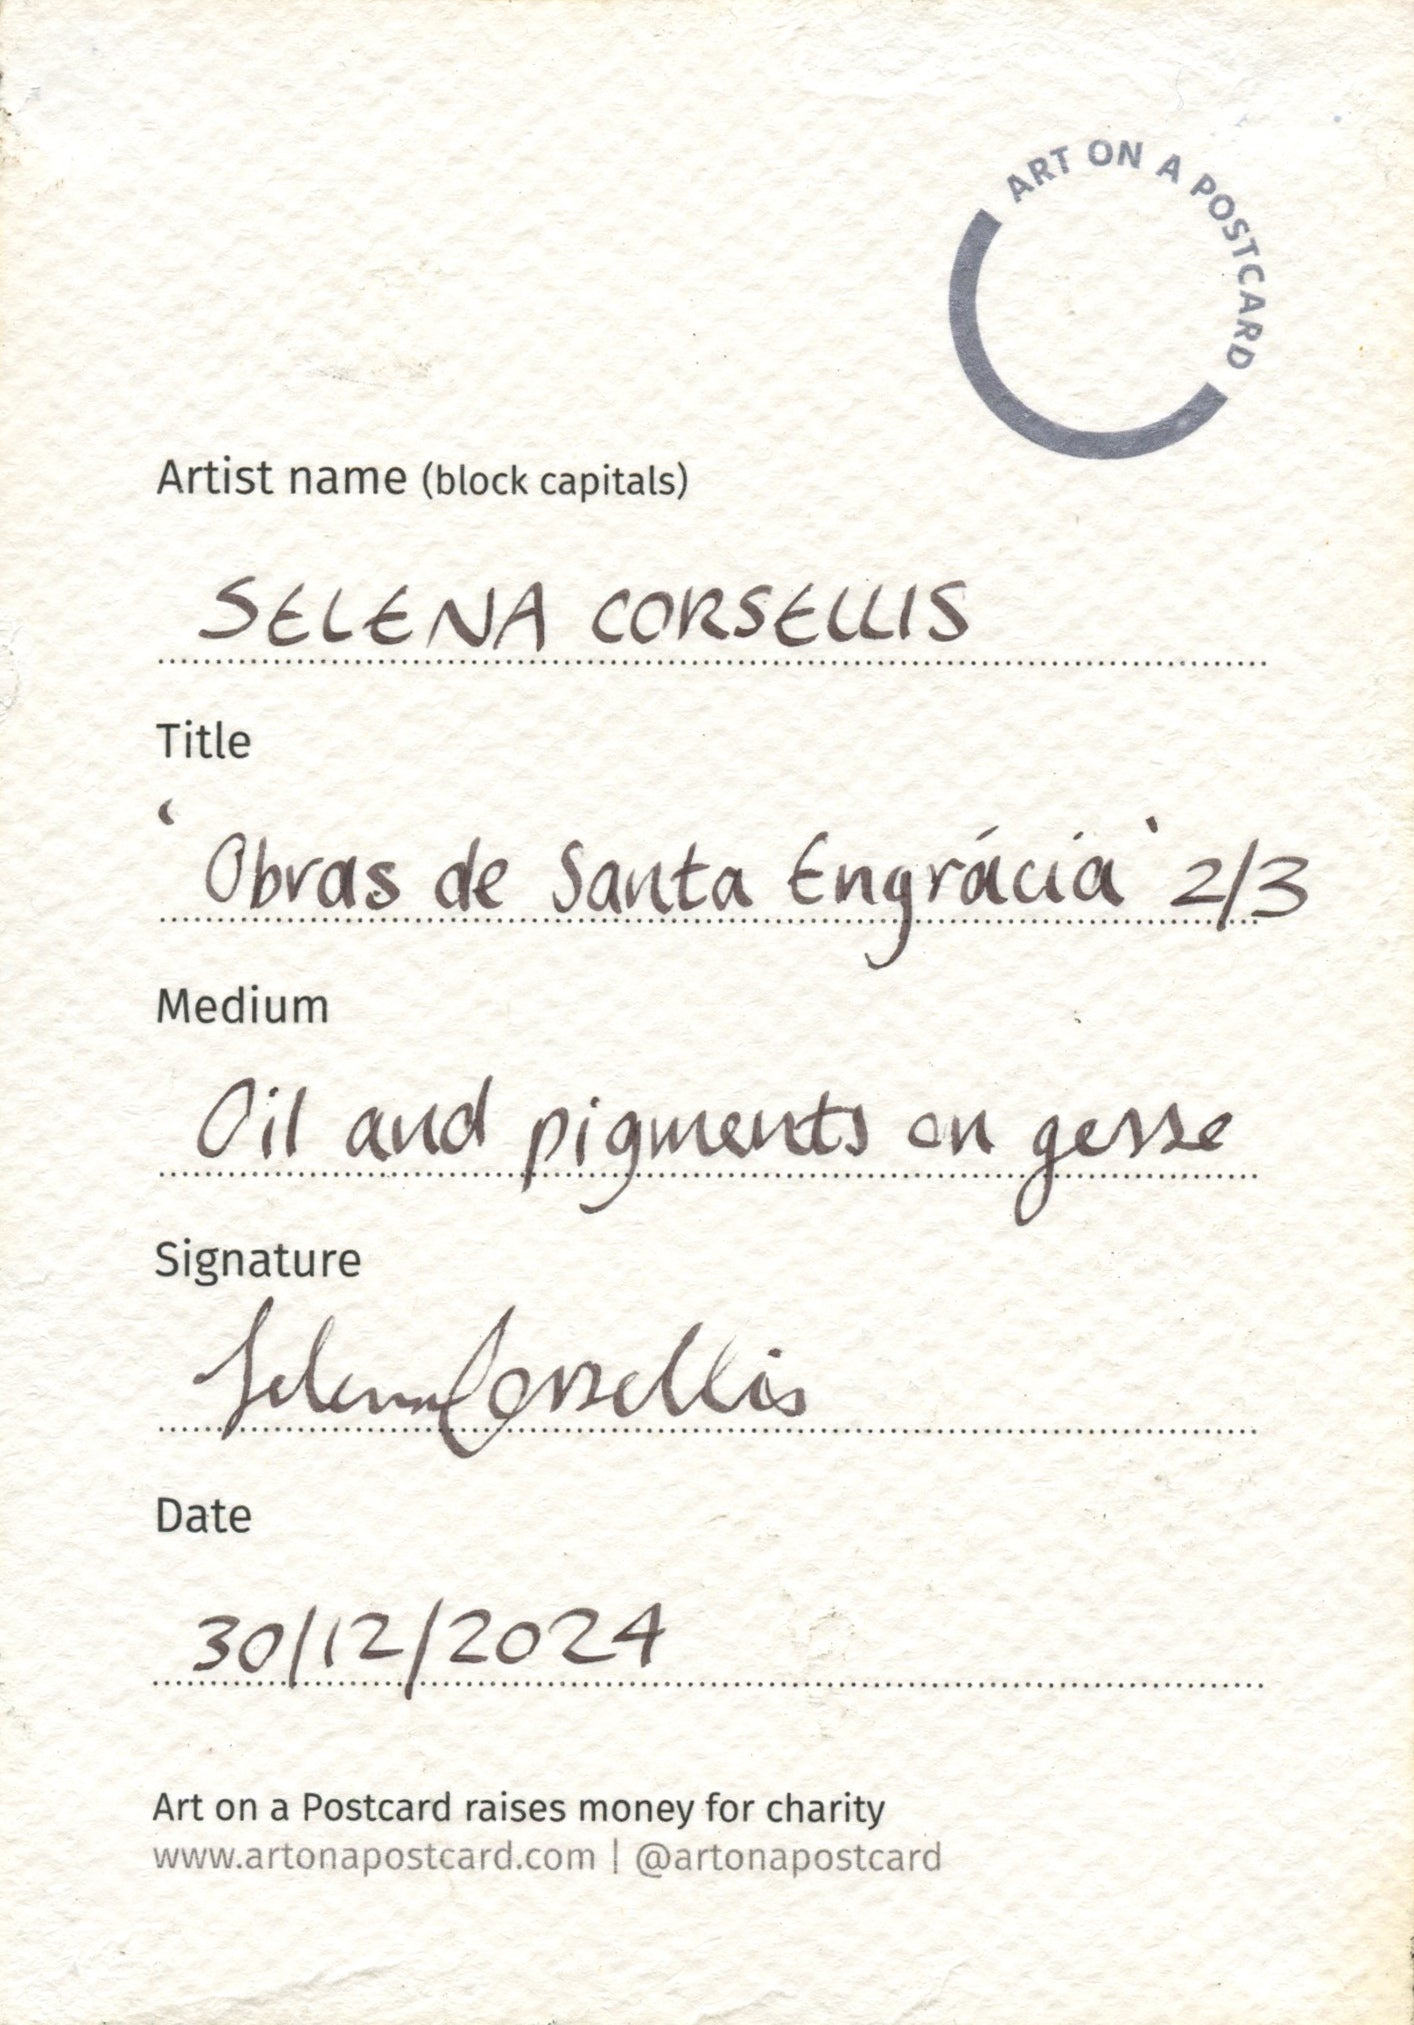 ART ON A POSTCARD
Artist name (block capitals)
SELENA CORSELLIS
Title
'Obras de Santa Engrácia' 2/3
Medium
Oil and pigments on gesso
Signature
Selena Corsellis
Date
30/12/2024
Art on a Postcard raises money for charity
www.artonapostcard.com | @artonapostcard